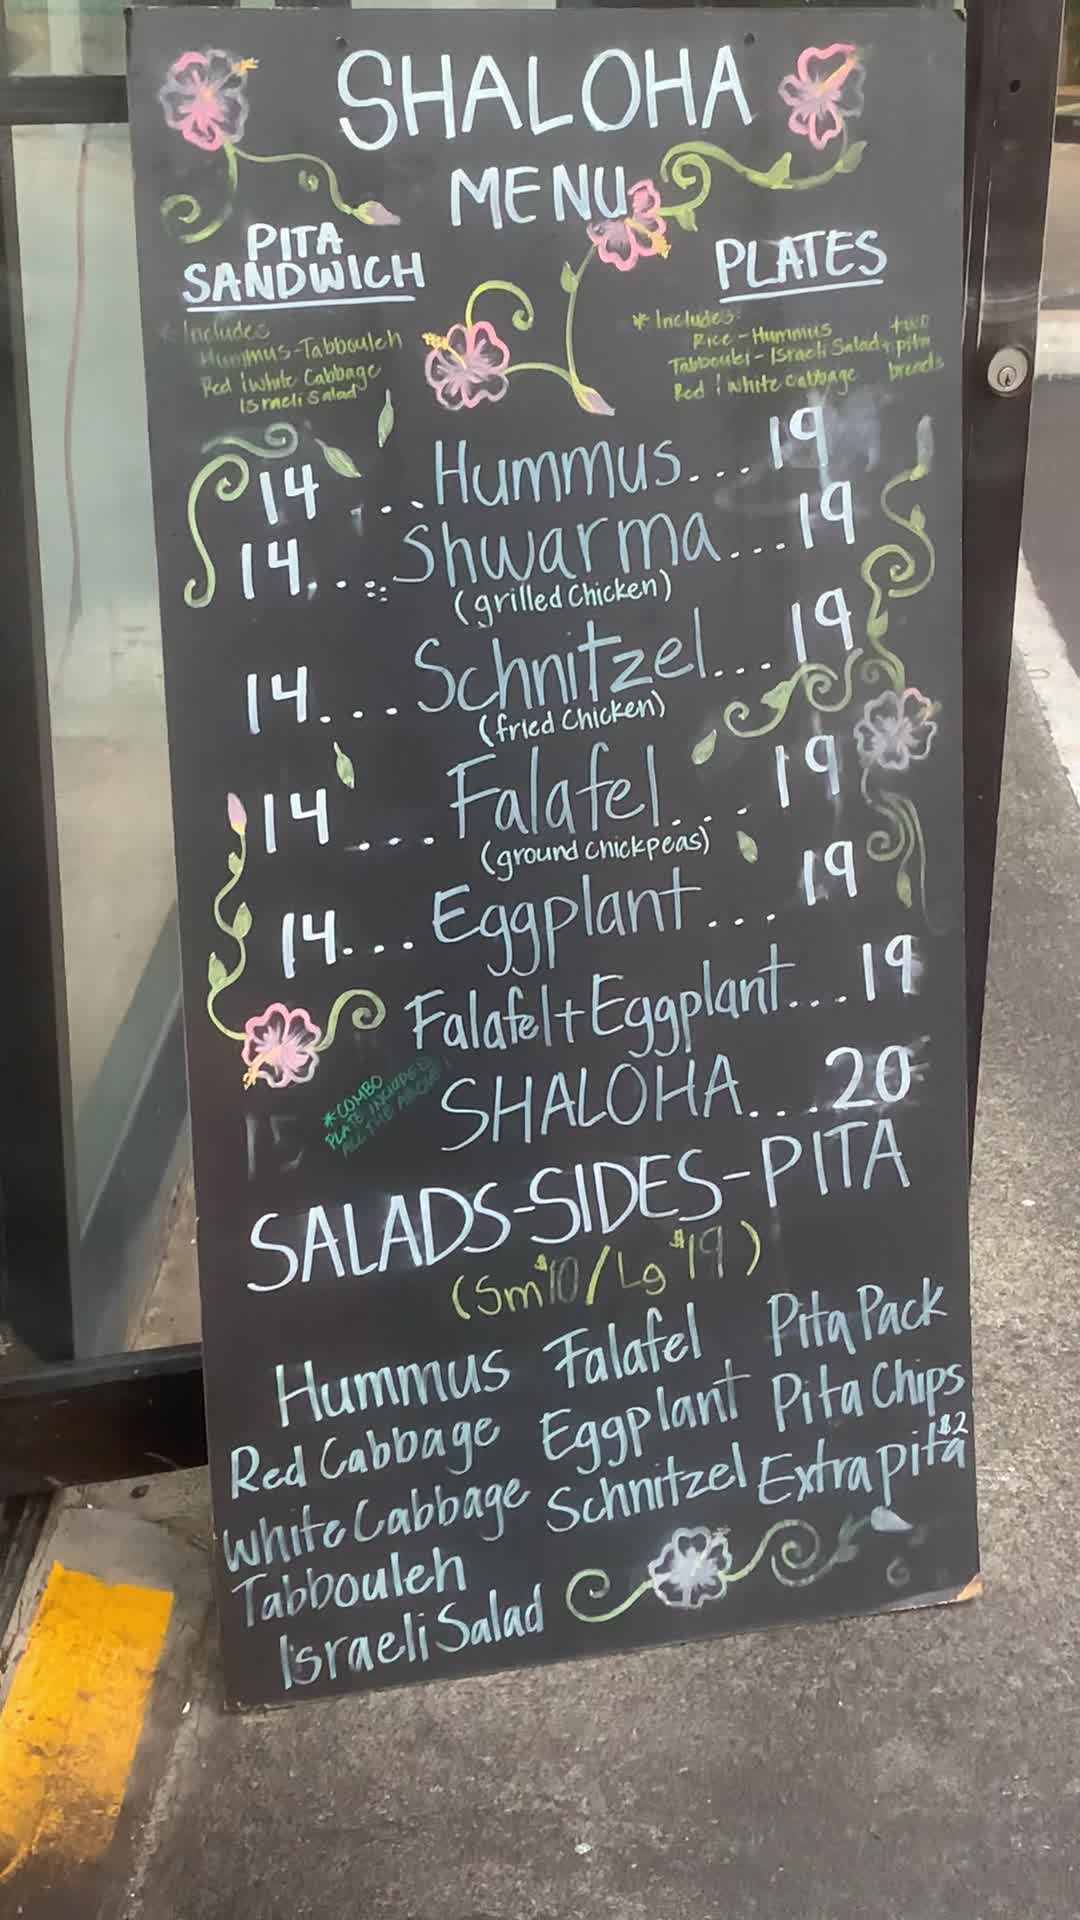 SHALOHA
MENU
PITA
SANDWICH
* Includes
Hummus-Tabbouleh
Red / White Cabbage
Israeli Salad
PLATES
* Includes:
Rice - Hummus
Tabbouleh - Israeli Salad
Red / white cabbage
+ two
pita
breads
14 ... Hummus... 19
14... Shwarma... 19
(grilled Chicken)
14... Schnitzel... 19
(fried Chicken)
14 .... Falafel... 19
(ground chickpeas)
14... Eggplant... 19
Falafel+Eggplant... 19
*COMBO
PLATE INCLUDED
ALL THE ABOVE!
15 SHALOHA... 20
SALADS-SIDES-PITA
(Sm $10/Lg $19)
Hummus Falafel Pita Pack
Red Cabbage Eggplant Pita Chips
White Cabbage Schnitzel Extra pita $2
Tabbouleh
Israeli Salad